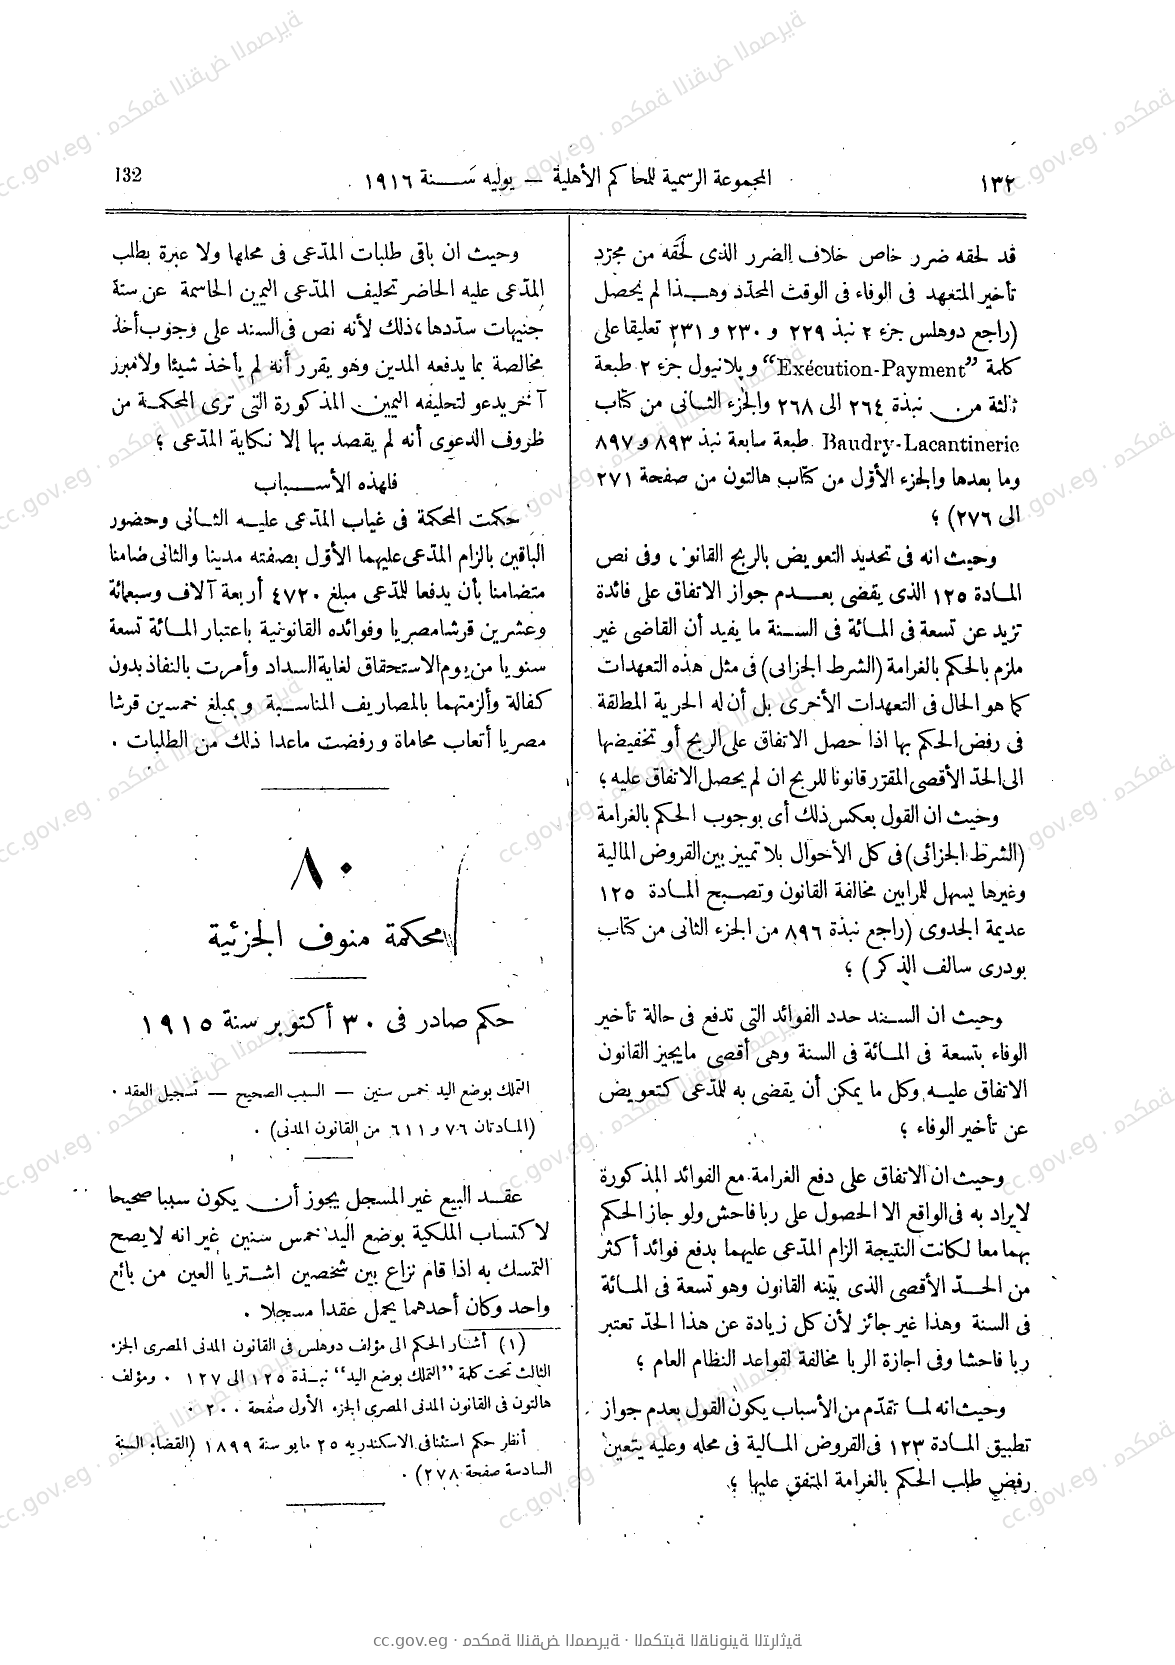 ١٣٢
المجموعة الرسمية للمحاكم الأهلية — يوليه سنة ١٩١٦
132
قد لحقه ضرر خاص خلاف الضرر الذى لحقه من مجرّد
تأخير المتعهد فى الوفاء فى الوقت المحدّد وهذا لم يحصل
(راجع دوهلس جزء ٢ نبذ ٢٢٩ و ٢٣٠ و ٢٣١ تعليقا على
كلمة ”Exécution-Payment“ وبلانيول جزء ٢ طبعة
ثالثة من نبذة ٢٦٤ الى ٢٦٨ والجزء الثانى من كتاب
Baudry-Lacantinerie طبعة سابعة نبذ ٨٩٣ و ٨٩٧
وما بعدها والجزء الأوّل من كتاب هالتون من صفحة ٢٧١
الى ٢٧٦) ؛
وحيث انه فى تحديد التعويض بالربح القانونى وفى نص
المادة ١٢٥ الذى يقضى بعدم جواز الاتفاق على فائدة
تزيد عن تسعة فى المائة فى السنة ما يفيد أن القاضى غير
ملزم بالحكم بالغرامة (الشرط الجزائى) فى مثل هذه التعهدات
كما هو الحال فى التعهدات الأخرى بل أن له الحرية المطلقة
فى رفض الحكم بها اذا حصل الاتفاق على الربح أو تخفيضها
الى الحدّ الأقصى المقرّر قانونا للربح ان لم يحصل الاتفاق عليه ؛
وحيث ان القول بعكس ذلك أى بوجوب الحكم بالغرامة
(الشرط الجزائى) فى كل الأحوال بلا تمييز بين القروض المالية
وغيرها يسهل للمرابين مخالفة القانون وتصبح المادة ١٢٥
عديمة الجدوى (راجع نبذة ٨٩٦ من الجزء الثانى من كتاب
بودرى سالف الذكر) ؛
وحيث ان السند حدد الفوائد التى تدفع فى حالة تأخير
الوفاء بتسعة فى المائة فى السنة وهى أقصى مايجيز القانون
الاتفاق عليه وكل ما يمكن أن يقضى به للمدّعى كتعويض
عن تأخير الوفاء ؛
وحيث ان الاتفاق على دفع الغرامة مع الفوائد المذكورة
لايراد به فى الواقع الا الحصول على ربا فاحش ولو جاز الحكم
بهما معا لكانت النتيجة الزام المدّعى عليهما بدفع فوائد أكثر
من الحدّ الأقصى الذى بيّنه القانون وهو تسعة فى المائة
فى السنة وهذا غير جائز لأن كل زيادة عن هذا الحدّ تعتبر
ربا فاحشا وفى اجازة الربا مخالفة لقواعد النظام العام ؛
وحيث انه لما تقدّم من الأسباب يكون القول بعدم جواز
تطبيق المادة ١٢٣ فى القروض المالية فى محله وعليه يتعين
رفض طلب الحكم بالغرامة المتفق عليها ؛
وحيث ان باقى طلبات المدّعى فى محلها ولا عبرة بطلب
المدّعى عليه الحاضر تحليف المدّعى اليمين الحاسمة عن ستة
جنيهات سدّدها، ذلك لأنه نص فى السند على وجوب أخذ
مخالصة بما يدفعه المدين وهو يقرر أنه لم يأخذ شيئا ولا مبرز
آخر يدعو لتحليفه اليمين المذكورة التى ترى المحكمة من
ظروف الدعوى أنه لم يقصد بها إلا نكاية المدّعى ؛
فلهذه الأسباب
حكمت المحكمة فى غياب المدّعى عليه الثانى وحضور
الباقين بالزام المدّعى عليهما الأوّل بصفته مدينا والثانى ضامنا
متضامنا بأن يدفعا للمدّعى مبلغ ٤٧٢٠ أربعة آلاف وسبعمائة
وعشرين قرشا مصريا وفوائده القانونية باعتبار المائة تسعة
سنويا من يوم الاستحقاق لغاية السداد وأمرت بالنفاذ بدون
كفالة وألزمتهما بالمصاريف المناسبة وبمبلغ خمسين قرشا
مصريا أتعاب محاماة ورفضت ماعدا ذلك من الطلبات .
٨٠
محكمة منوف الجزئية
حكم صادر فى ٣٠ أكتوبر سنة ١٩١٥
التملك بوضع اليد خمس سنين — السبب الصحيح — تسجيل العقد .
(المادتان ٧٦ و ٦١١ من القانون المدنى) .
عقد البيع غير المسجل يجوز أن يكون سببا صحيحا
لاكتساب الملكية بوضع اليد خمس سنين غير انه لا يصح
التمسك به اذا قام نزاع بين شخصين اشتريا العين من بائع
واحد وكان أحدهما يحمل عقدا مسجلا .
(١) أشار الحكم الى مؤلف دوهلس فى القانون المدنى المصرى الجزء
الثالث تحت كلمة ”التملك بوضع اليد“ نبذة ١٢٥ الى ١٢٧ . ومؤلف
هالتون فى القانون المدنى المصرى الجزء الأول صفحة ٢٠٠ .
أنظر حكم استئنافى الاسكندرية ٢٥ مايو سنة ١٨٩٩ (القضاء السنة
السادسة صفحة ٢٧٨) .
cc.gov.eg · محكمة النقض المصرية · المكتبة القانونية التراثية